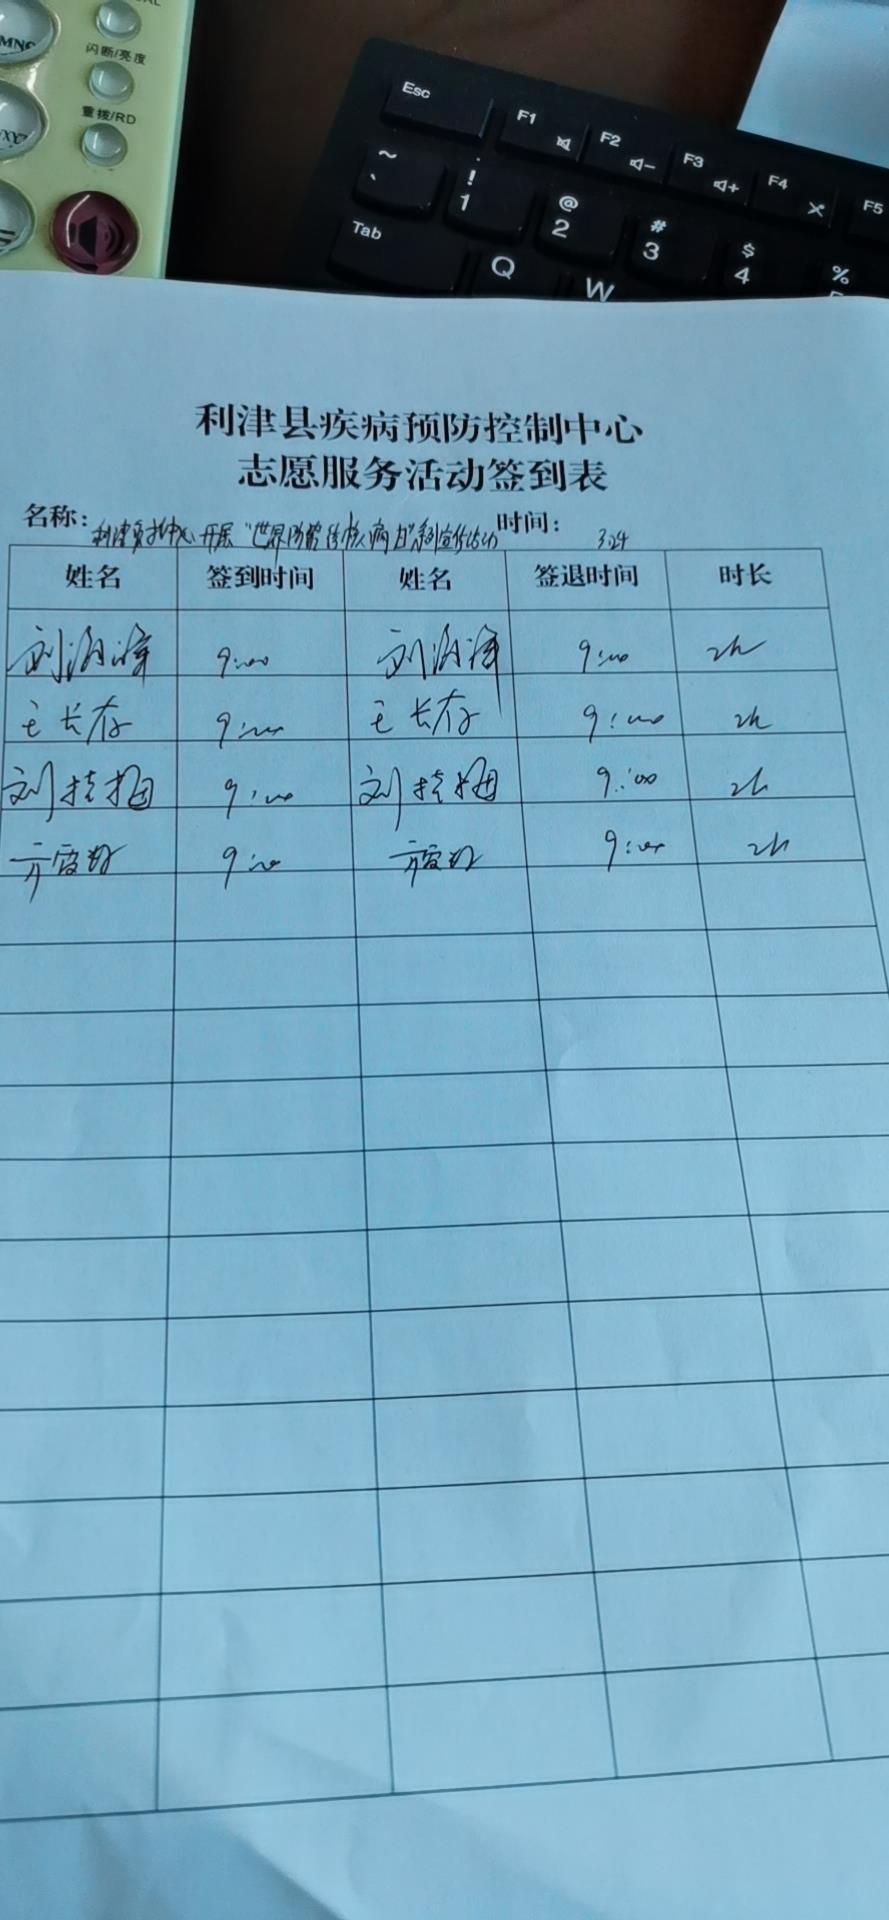 MNO
闪断/亮度
重拨/RD
Esc
F1
F2
F3
F4
F5
~
`
!
1
@
2
#
3
$
4
%
Tab
Q
W
利津县疾病预防控制中心
志愿服务活动签到表
名称: 利津疾控中心开展“世界防治结核病日”系列宣传活动 时间: 3.24
姓名 签到时间 姓名 签退时间 时长
9:00 9:00 2h
王长存 9:00 王长存 9:00 2h
刘 9:00 刘 9:00 2h
9:00 9:00 2h